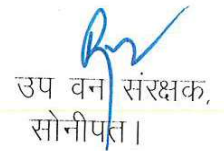 उप वन संरक्षक,
सोनीपत।